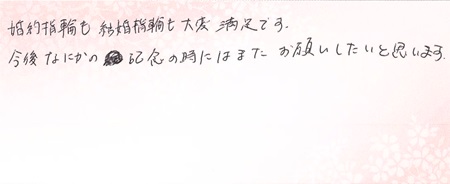 婚約指輪も結婚指輪も大変満足です.
今後なにかの記念の時にはまたお願いしたいと思います.